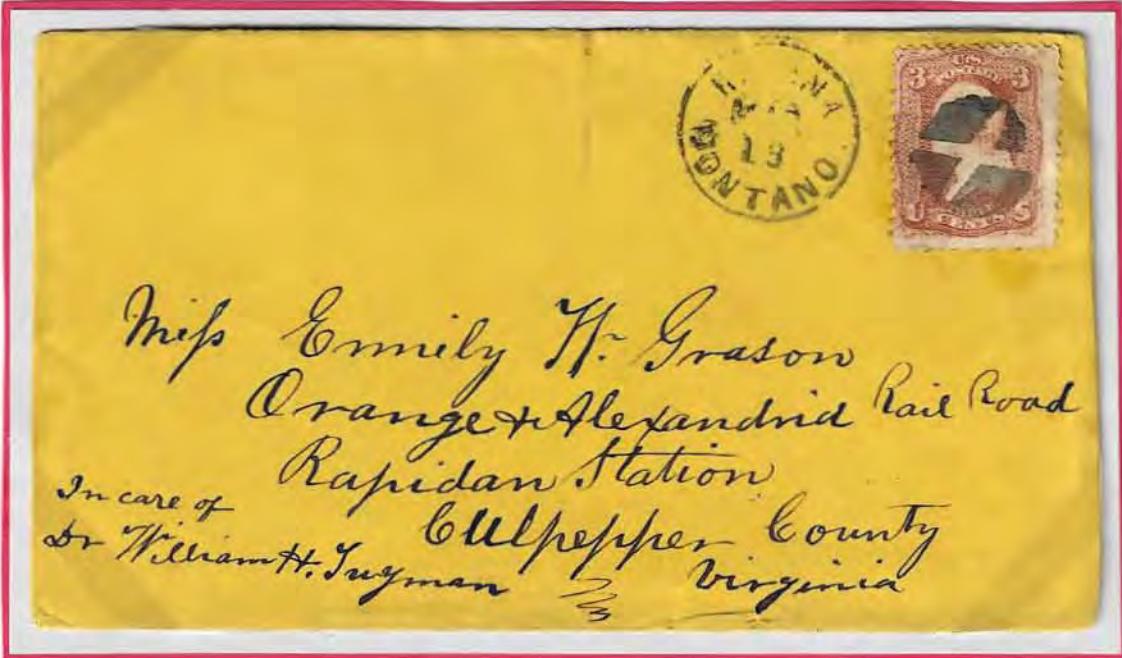 MONTANO
18
3 U.S. 3
POSTAGE
CENTS
Miss Emily H. Grason
Orange & Alexandria Rail Road
Rapidan Station
Culpepper County
Virginia
In care of
Dr William H. Tugman